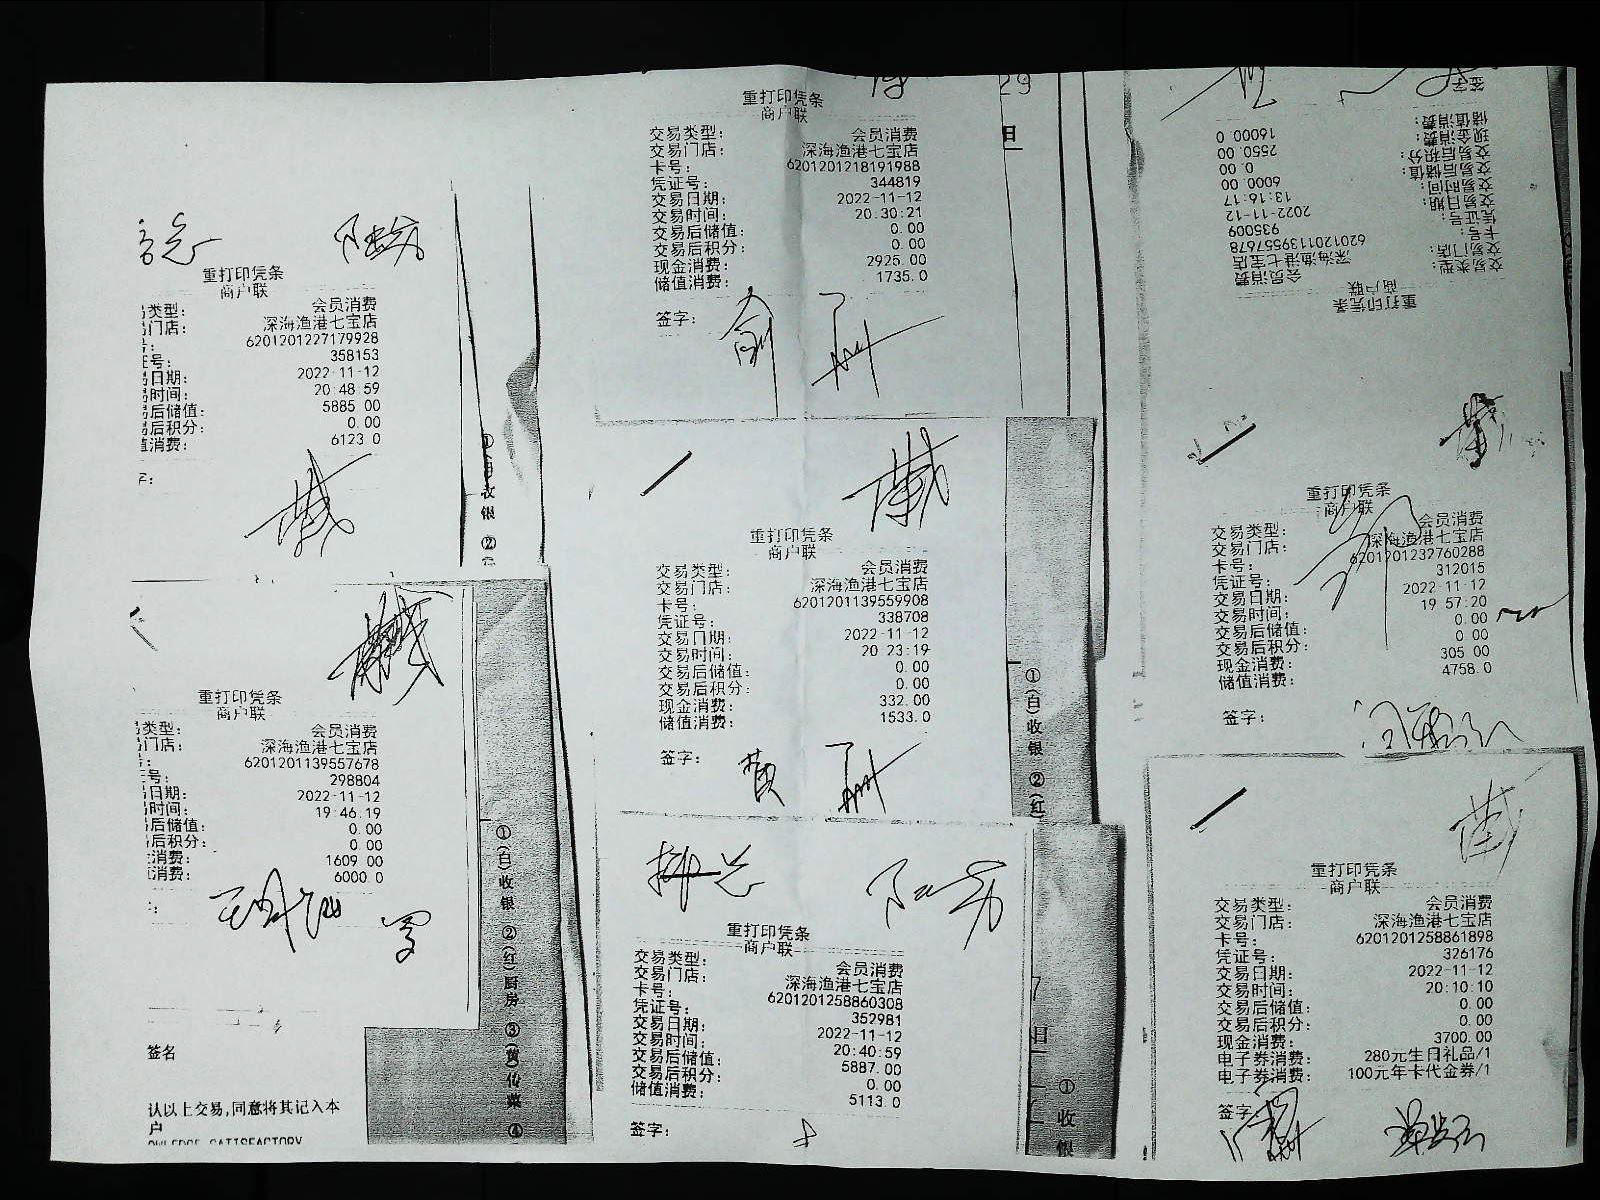 重打印凭条
商户联
类型： 会员消费
门店： 深海渔港七宝店
号： 6201201227179928
证号： 358153
易日期： 2022-11-12
易时间： 20:48:59
易后储值： 5885.00
易后积分： 0.00
值消费： 6123.0
字：
重打印凭条
商户联
类型： 会员消费
门店： 深海渔港七宝店
6201201139557678
号： 298804
日期： 2022-11-12
易时间： 19:46:19
后储值： 0.00
后积分： 0.00
消费： 1609.00
消费： 6000.0
签名
认以上交易,同意将其记入本
户
OWLEDGE SATISFACTORY
①
收
银
②
①(白)收银 ②(红)厨房 ③(黄)传菜 ④
重打印凭条
商户联
交易类型： 会员消费
交易门店： 深海渔港七宝店
卡号： 6201201218191988
凭证号： 344819
交易日期： 2022-11-12
交易时间： 20:30:21
交易后储值： 0.00
交易后积分： 0.00
现金消费： 2925.00
储值消费： 1735.0
签字：
29
日
重打印凭条
商户联
交易类型： 会员消费
交易门店： 深海渔港七宝店
卡号： 6201201139559908
凭证号： 338708
交易日期： 2022-11-12
交易时间： 20:23:19
交易后储值： 0.00
交易后积分： 0.00
现金消费： 332.00
储值消费： 1533.0
签字： 黄
①(白)收银 ②(红)
重打印凭条
商户联
交易类型： 会员消费
交易门店： 深海渔港七宝店
卡号： 6201201258860308
凭证号： 352981
交易日期： 2022-11-12
交易时间： 20:40:59
交易后储值： 5887.00
交易后积分： 0.00
储值消费： 5113.0
签字：
7
日
①
收
银
重打印凭条
商户联
交易类型： 会员消费
交易门店： 深海渔港七宝店
卡号： 6201201139557678
凭证号： 935009
交易日期： 2022-11-12
交易时间： 13:16:17
交易后储值： 6000.00
交易后积分： 0.00
现金消费： 2550.00
储值消费： 16000.0
签字
重打印凭条
商户联
交易类型： 会员消费
交易门店： 深海渔港七宝店
卡号： 6201201232760288
凭证号： 312015
交易日期： 2022-11-12
交易时间： 19:57:20
交易后储值： 0.00
交易后积分： 0.00
现金消费： 305.00
储值消费： 4758.0
签字：
重打印凭条
商户联
交易类型： 会员消费
交易门店： 深海渔港七宝店
卡号： 6201201258861898
凭证号： 326176
交易日期： 2022-11-12
交易时间： 20:10:10
交易后储值： 0.00
交易后积分： 0.00
现金消费： 3700.00
电子券消费： 280元生日礼品/1
电子券消费： 100元年卡代金券/1
签字